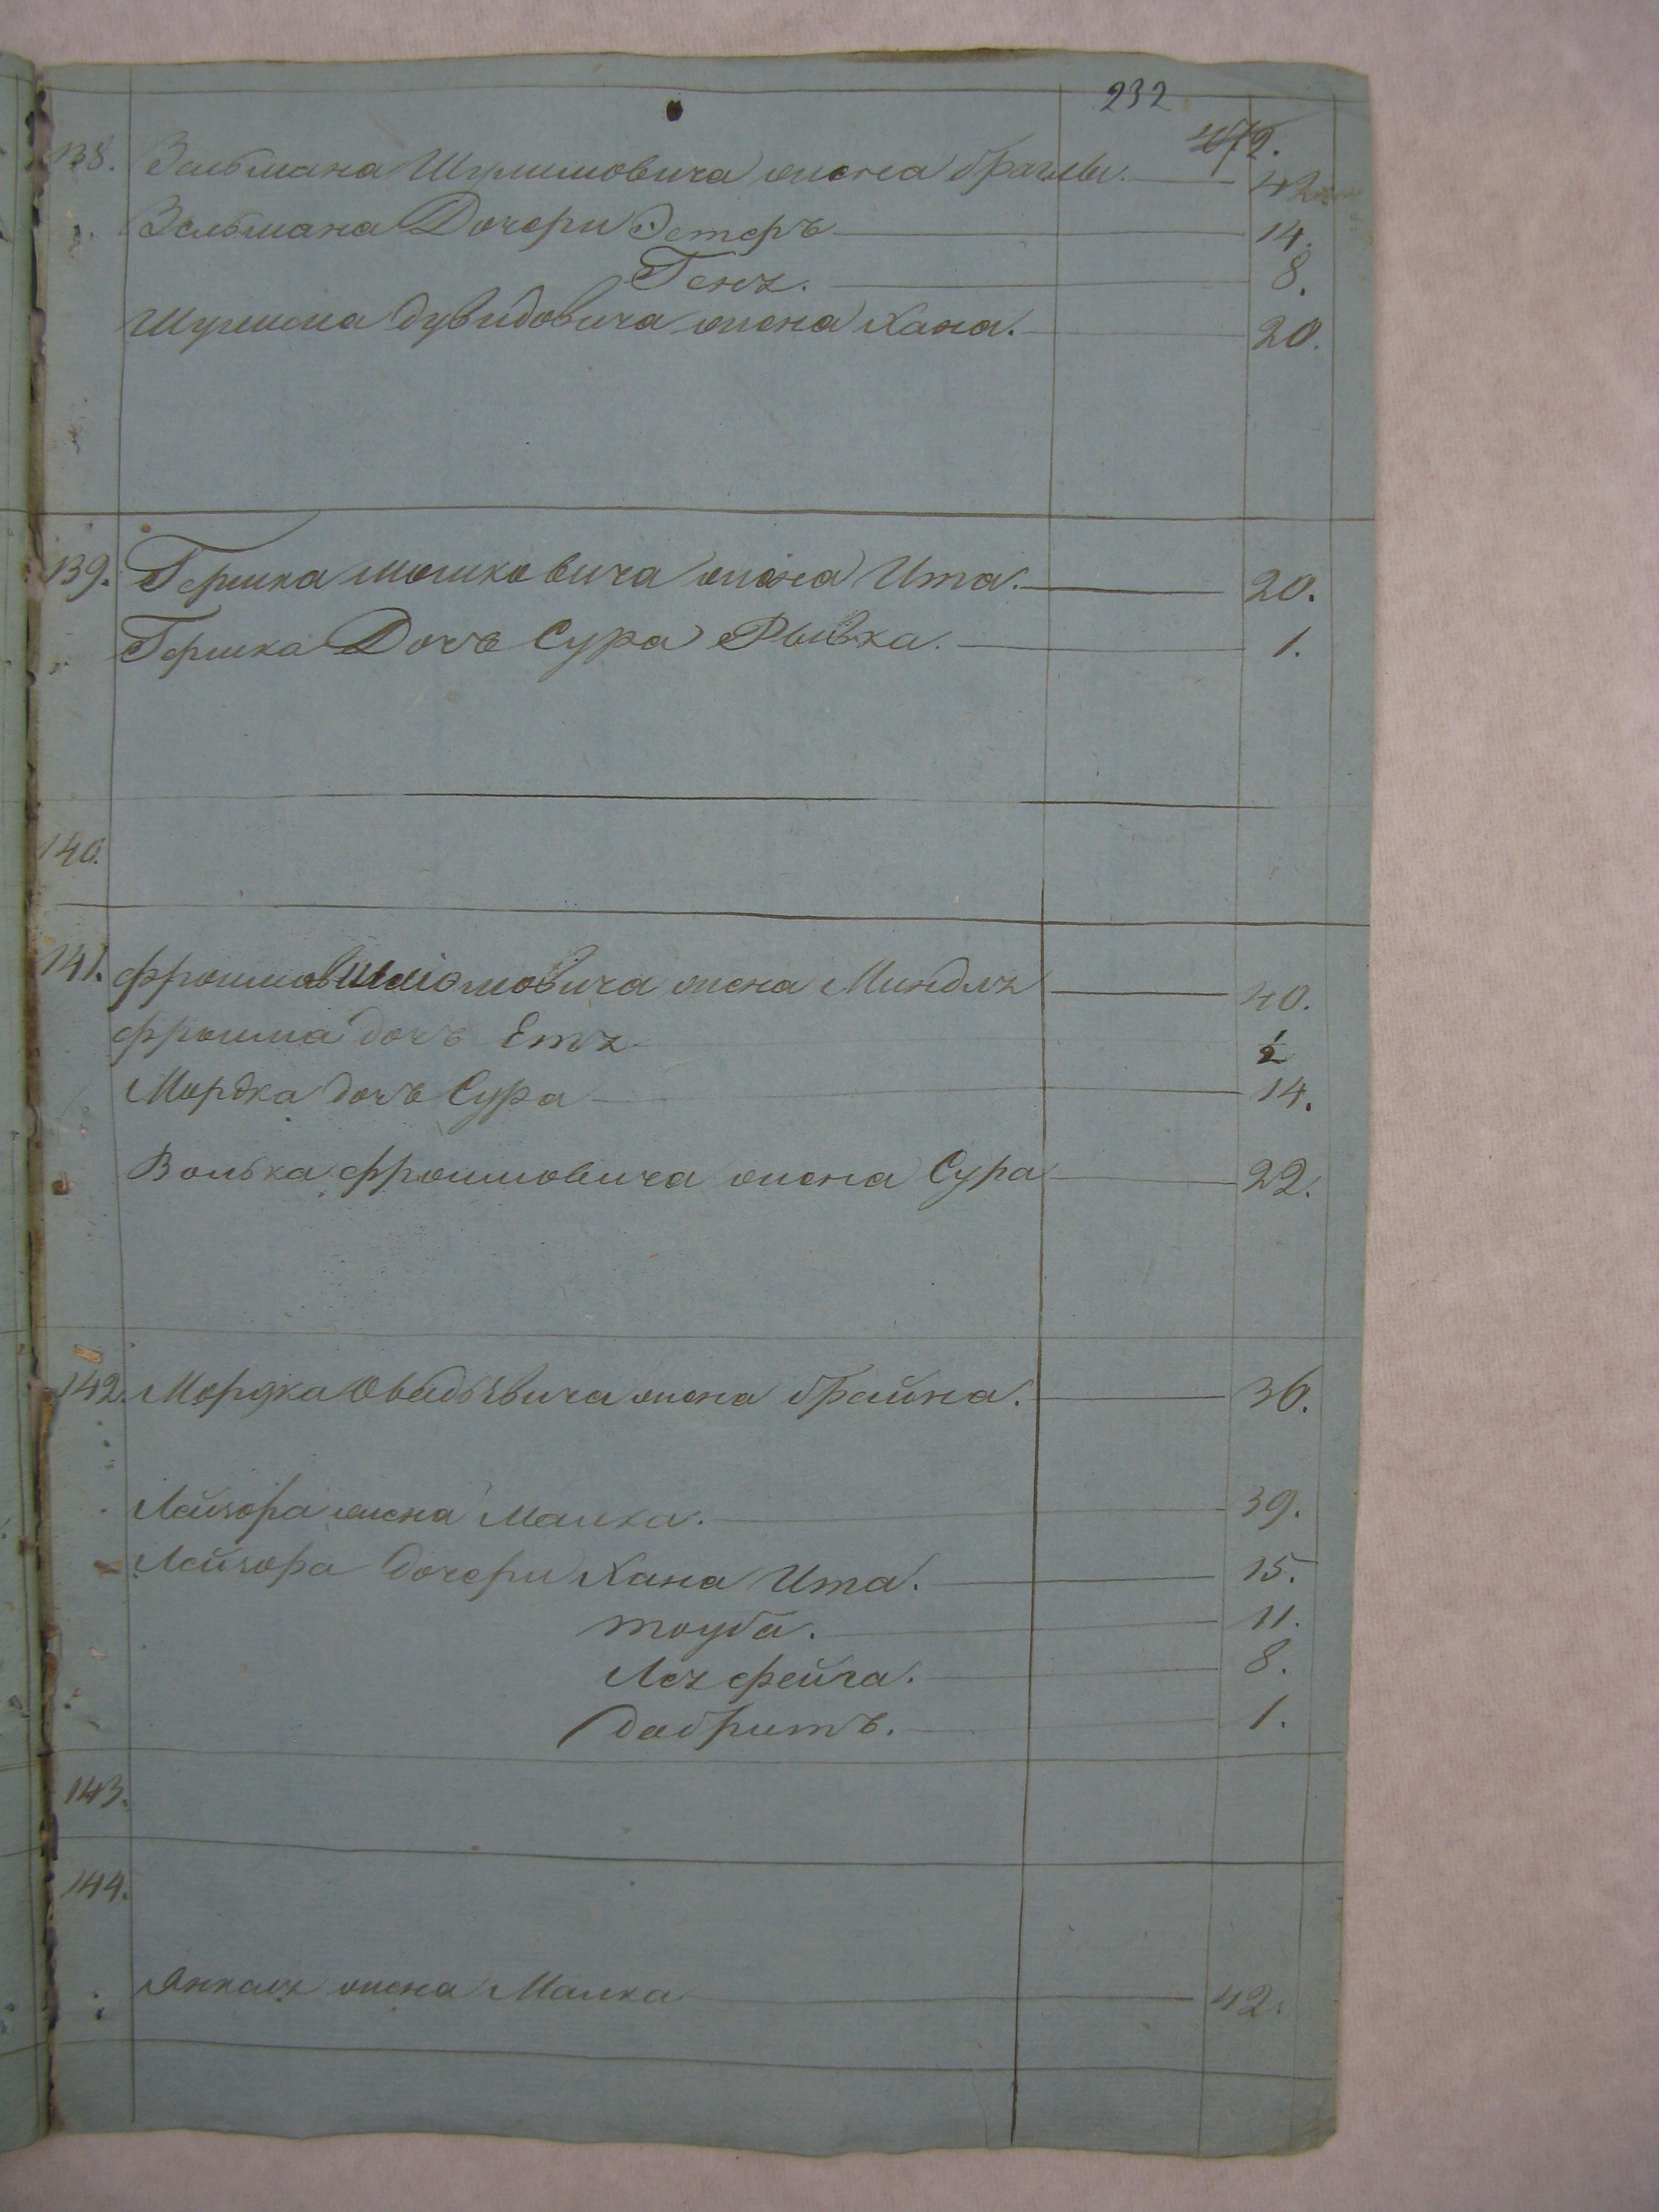 232
472.
138. Зельмана Шулимовича жена 42
Зельмана Дочери Эстеръ 14.
Геня. 8.
Шулима Дувидовича жена Хана. 20.
139. Гершка Мошковича жена Ита. 20.
Гершка Дочь Сура Рывка. 1.
140.
141. Фроима жена Миндля 40.
Фроима дочь Етя 1/2
Мордка дочь Сура 14.
Волька Фроимовича жена Сура 22.
142. Мордка Овадъевича жена Брайна. 36.
Лейзора жена Малка. 39.
Лейзора дочери Хана Ита. 15.
Тоуба. 11.
Лея Фейга. 8.
Добришъ. 1.
143.
144.
жена Малка 42.